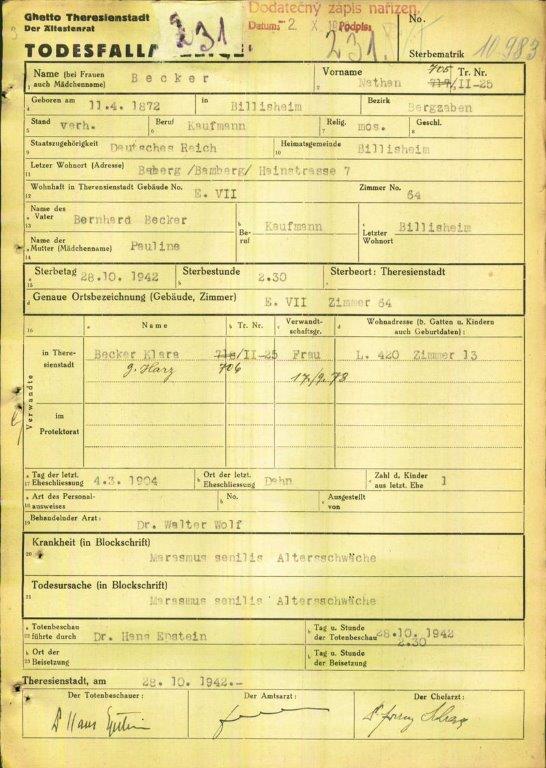 Ghetto Theresienstadt
Der Ältestenrat
Dodatečný zápis nařízen.
Datum: 2 X Podpis:
No.
TODESFALLA
231
231
Sterbematrik 10983
Name (bei Frauen auch Mädchenname) Becker Vorname Nathan 705 Tr. Nr. 717/II-25
Geboren am 11.4. 1872 in Billisheim Bezirk Bergzaben
Stand verh. Beruf Kaufmann Relig. mos. Geschl.
Staatszugehörigkeit Deutsches Reich Heimatsgemeinde Billisheim
Letzer Wohnort (Adresse) Bamberg /Bamberg/ Hainstrasse 7
Wohnhaft in Theresienstadt Gebäude No. E. VII Zimmer No. 64
Name des Vater Bernhard Becker Beruf Kaufmann Letzter Wohnort Billisheim
Name der Mutter (Mädchenname) Pauline
Sterbetag 28.10. 1942 Sterbestunde 2.30 Sterbeort: Theresienstadt
Genaue Ortsbezeichnung (Gebäude, Zimmer) E. VII Zimmer 64
Name Tr. Nr. Verwandtschaftsgr. Wohnadresse (b. Gatten u. Kindern auch Geburtdaten):
Verwandte
in Theresienstadt Becker Klara 718/II-25 Frau L. 420 Zimmer 13
g. Harz 706 17./9. 73
im Protektorat
Tag der letzt. Eheschliessung 4.3. 1904 Ort der letzt. Eheschliessung Dahn Zahl d. Kinder aus letzt. Ehe 1
Art des Personalausweises No. Ausgestellt von
Behandelnder Arzt: Dr. Walter Wolf
Krankheit (in Blockschrift)
Marasmus senilis Altersschwäche
Todesursache (in Blockschrift)
Marasmus senilis Altersschwäche
Totenbeschau führte durch Dr. Hans Epstein Tag u. Stunde der Totenbeschau 28.10. 1942
2.30
Ort der Beisetzung Tag u. Stunde der Beisetzung
Theresienstadt, am 28. 10. 1942.-
Der Totenbeschauer: Der Amtsarzt: Der Chefarzt:
Dr Hans Epstein